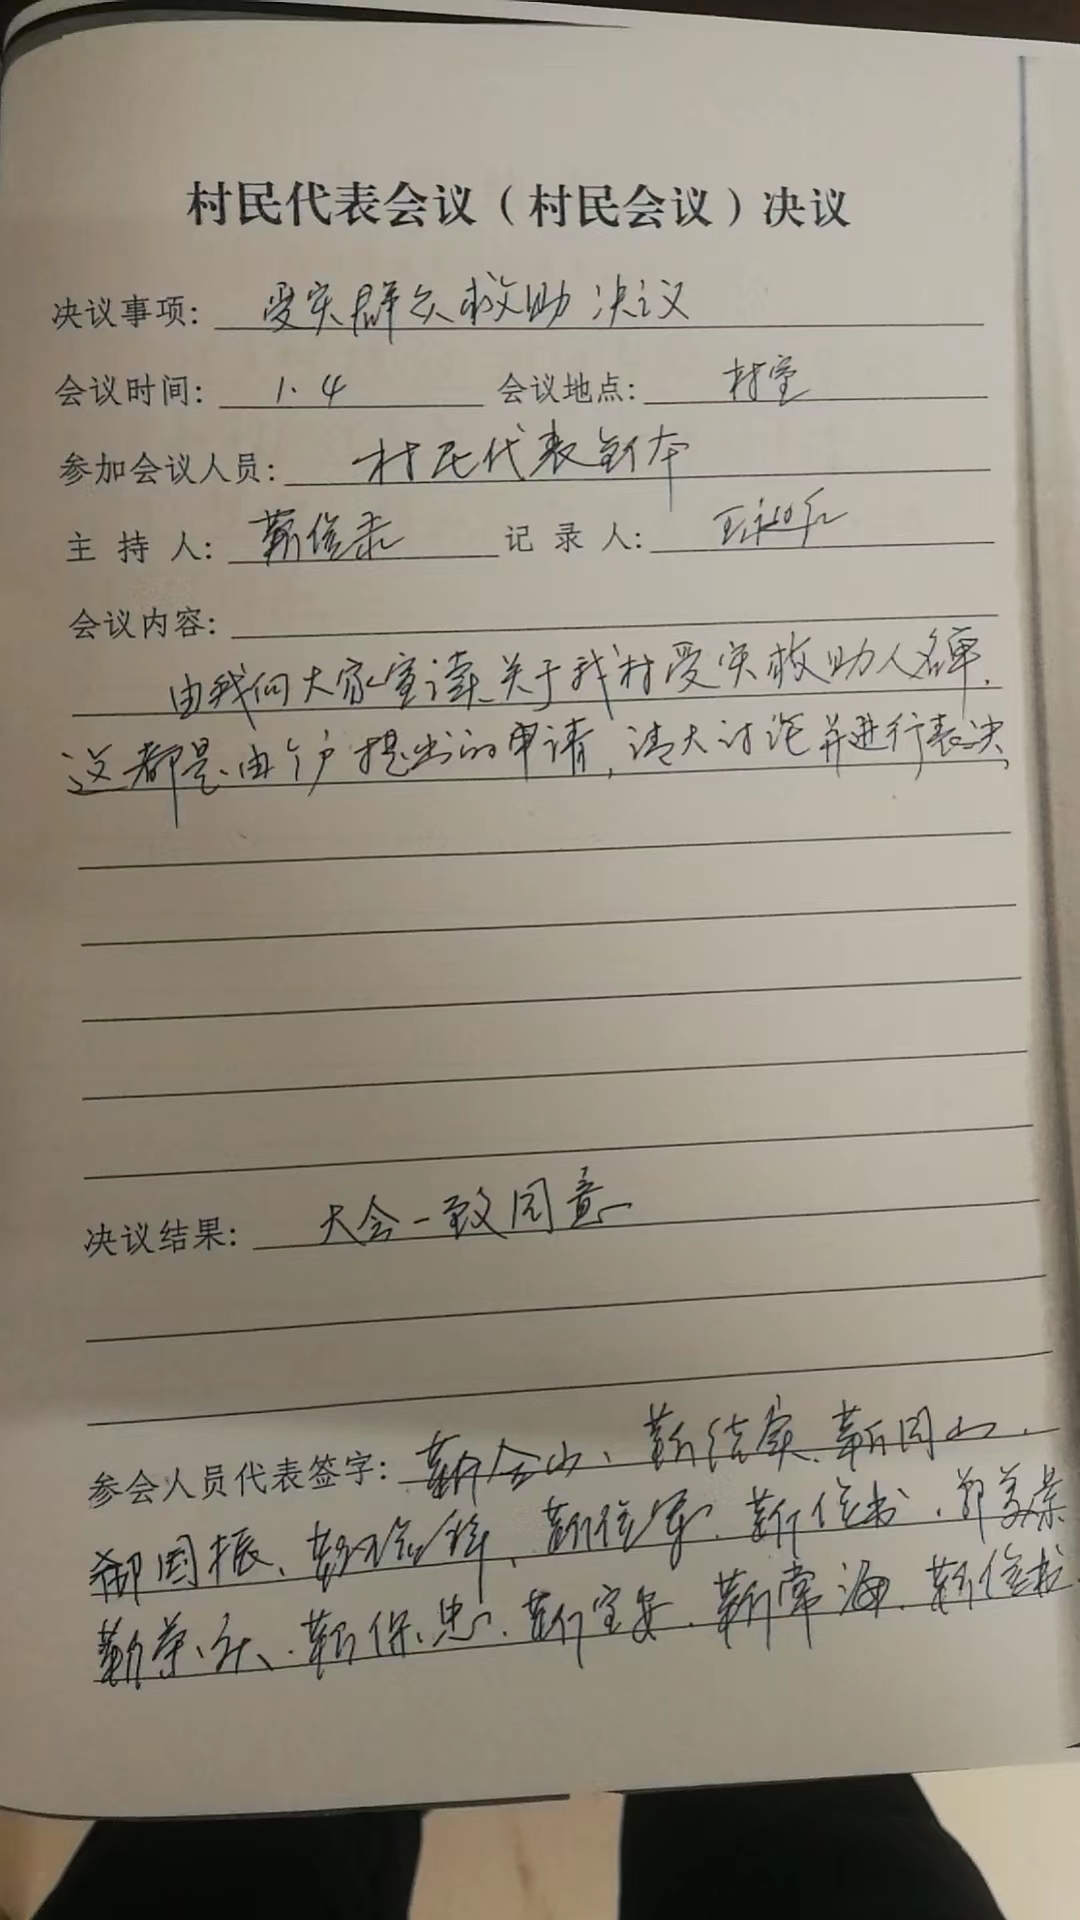 村民代表会议（村民会议）决议
决议事项: 受灾群众救助决议
会议时间: 1.4 会议地点: 村室
参加会议人员: 村民代表全体
主 持 人: 靳信 记 录 人: 王
会议内容:
由我向大家宣读关于我村受灾救助人名单,
这都是由个户提出的申请,请大讨论并进行表决,
决议结果: 大会一致同意
参会人员代表签字: 靳金山、靳结实、靳同山、
国振、靳信军、靳信书、郑美景
靳荣庆、靳保忠、靳宝安、靳常海、靳信